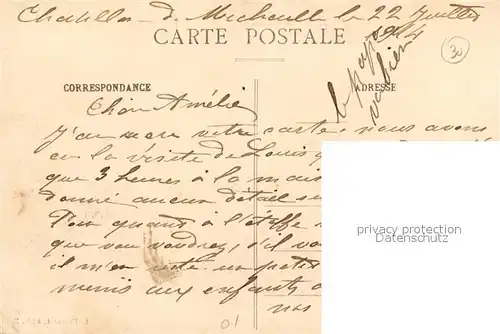 Chatillon-de-Michaille le 22 Juillet
CARTE POSTALE
30
le papa
va bien
CORRESPONDANCE
ADRESSE
Chère Amélie
J'ai votre carte nous avons
eu la visite de Louis
que 3 heures à la
donné aucun détail
Pour quant à l'étoffe
que vous voudrez, s'il
il m'en reste un petit
aux enfants
nos
privacy protection
Datenschutz
01